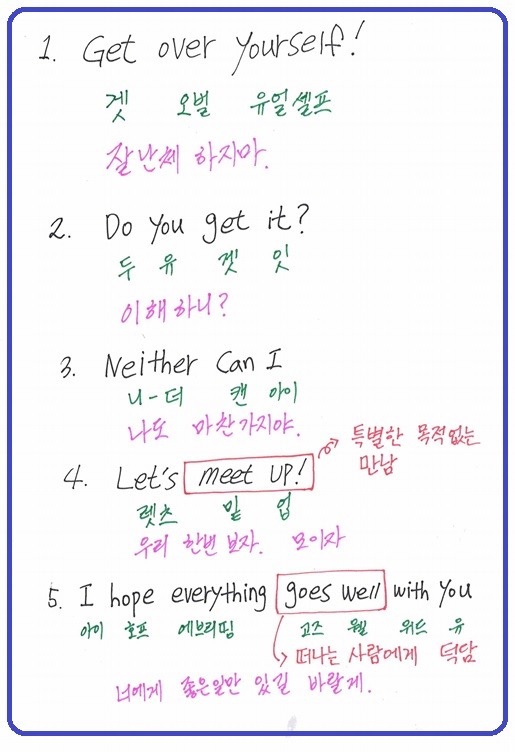 1. Get over yourself!
겟 오벌 유얼셀프
잘난체 하지마.
2. Do you get it?
두 유 겟 잇
이해하니?
3. Neither Can I
니-더 캔 아이
나도 마찬가지야.
4. Let's meet up!
특별한 목적없는
만남
렛츠 밑 업
우리 한번 보자. 모이자
5. I hope everything goes well with you
아이 호프 에브리띵 고즈 웰 위드 유
떠나는 사람에게 덕담
너에게 좋은일만 있길 바랄게.